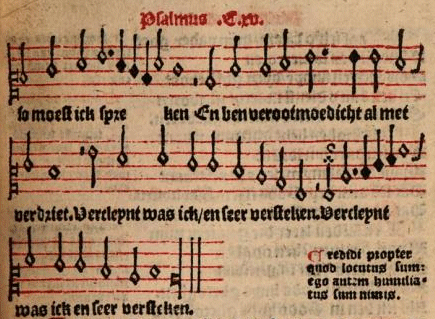 Psalmus .C.xv.
so moest ick spre ken En ben verootmoedicht al met
verdriet. Vercleynt was ick/en seer versteken. Vercleynt
was ick en seer versteken.
Credidi propter
quod locutus sum:
ego autem humilia-
tus sum nimis.